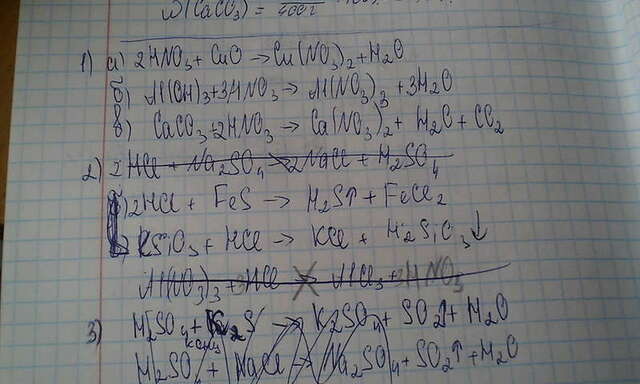 ω(CaCO₃) =
1) а) 2HNO₃ + CuO → Cu(NO₃)₂ + H₂O
б) Al(OH)₃ + 3HNO₃ → Al(NO₃)₃ + 3H₂O
в) CaCO₃ + 2HNO₃ → Ca(NO₃)₂ + H₂O + CO₂
2) 2HCl + Na₂SO₄ → 2NaCl + H₂SO₄
б) 2HCl + FeS → H₂S↑ + FeCl₂
KSiO₃ + HCl → KCl + H₂SiO₃↓
Al(NO₃)₃ + 3HCl → AlCl₃ + 3HNO₃
3) H₂SO₄ + K₂S → K₂SO₄ + SO₂↑ + H₂O
H₂SO₄ + NaCl → Na₂SO₄ + SO₂↑ + H₂O